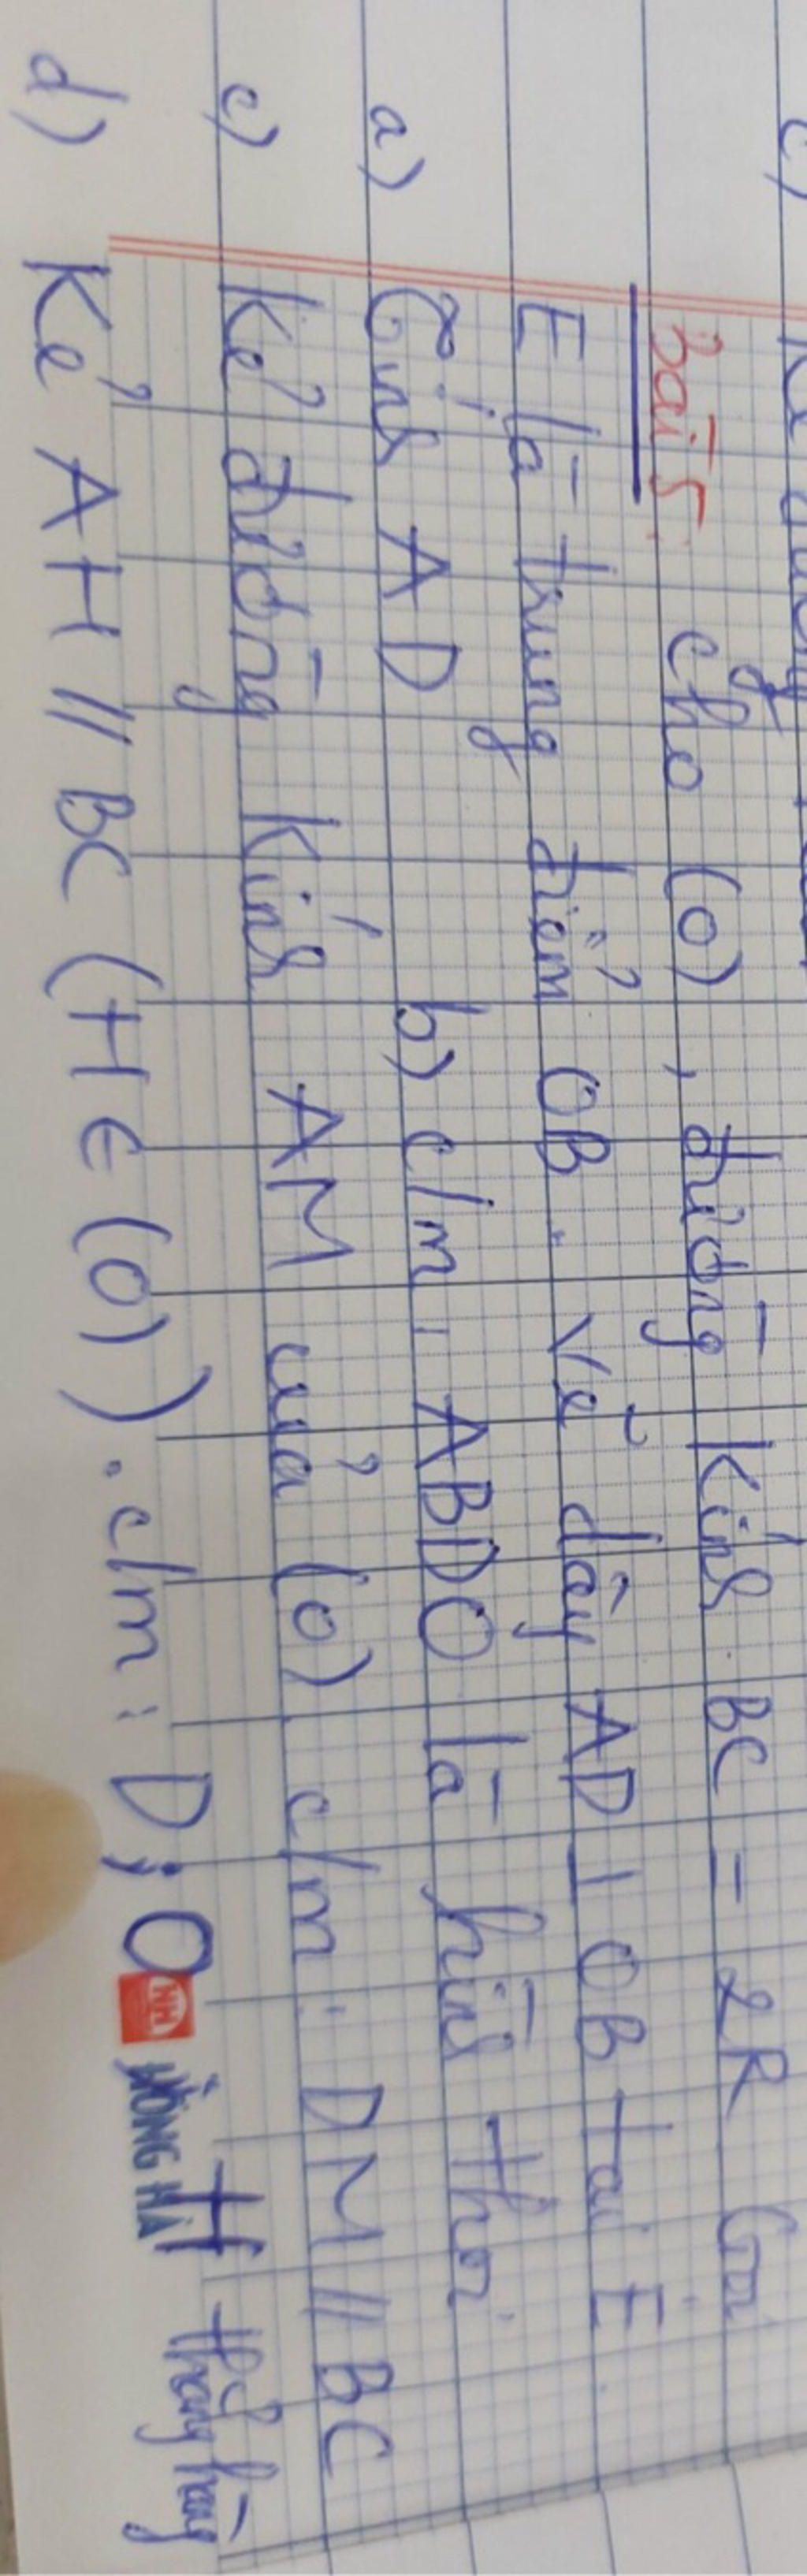 c) Kẻ
Bài 5: cho (O), đường kính BC = 2R Gọi
E là trung điểm OB. Vẽ dây AD ⊥ OB tại E.
a) Tính AD b) c/m: ABDO là hình thoi
c) Kẻ đường kính AM của (O) c/m: DM // BC
d) Kẻ AH // BC (H ∈ (O)). c/m: D; O; H thẳng hàng
HỒNG HÀ